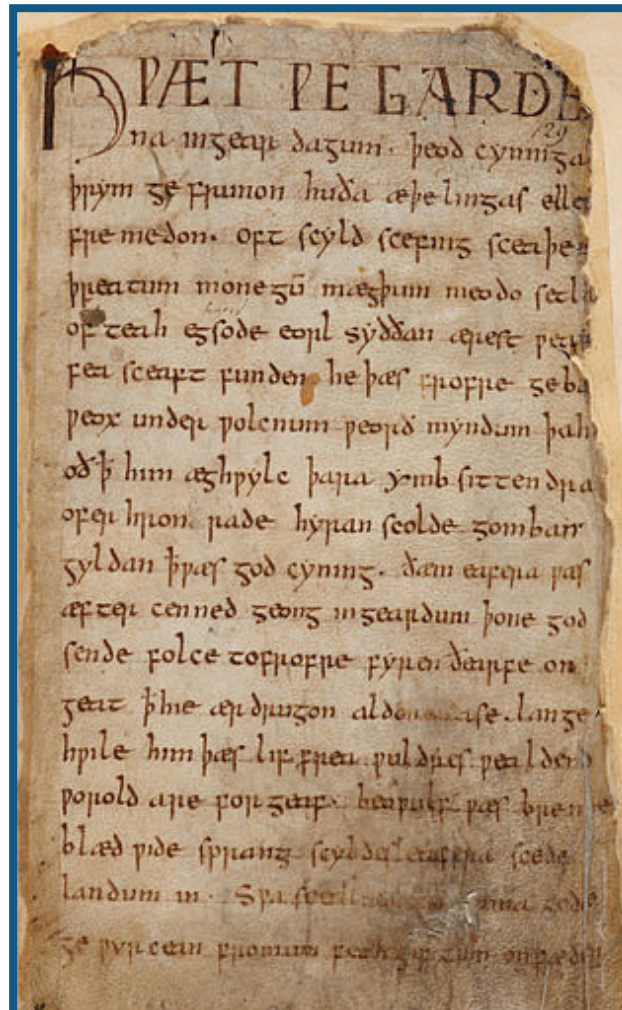 HǷÆT ǷE GARDE
129
na ingear dagum. þeod cyninga
þrym ge frunon huða æþelingas elle
fre medon. oft scyld scefing sceaþe
þreatum monegū mægþum meodo setla
of teah egsode eorl syððan ærest ƿear
fea sceaft funden he þæs frofre geba
ƿeox under ƿolcnum ƿeorð myndum þah
oð ꝥ him æghƿylc þara ymb sittendra
ofer hron rade hyran scolde gomban
gyldan ꝥ ƿæs god cyning. ðæm eafera ƿæs
æfter cenned geong ingeardum þone god
sende folce tofrofre fyren ðearfe on
geat ꝥ hie ær drugon lange
hƿile him þæs lif frea ƿuldres ƿealdend
ƿorold are for geaf. beoƿulf ƿæs breme
blæd ƿide sprang scyldes eafera scede
landum in. Sƿa gode
ge ƿyrcean fromum feoh giftum